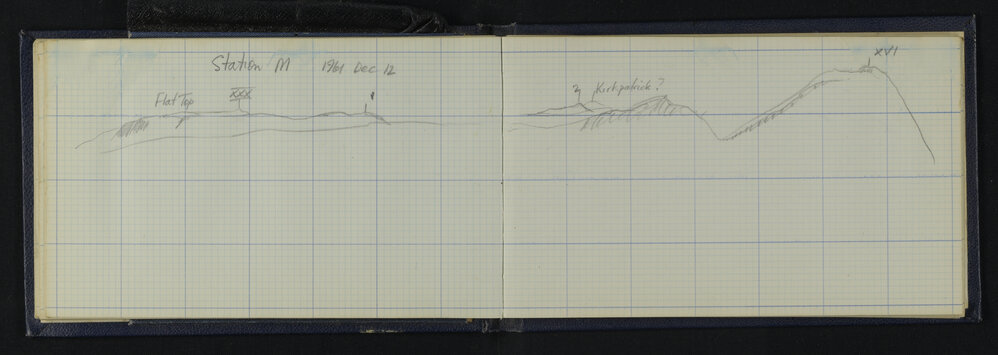 Station M 1961 Dec 12
XVI
Flat Top XXX
Kirkpatrick?